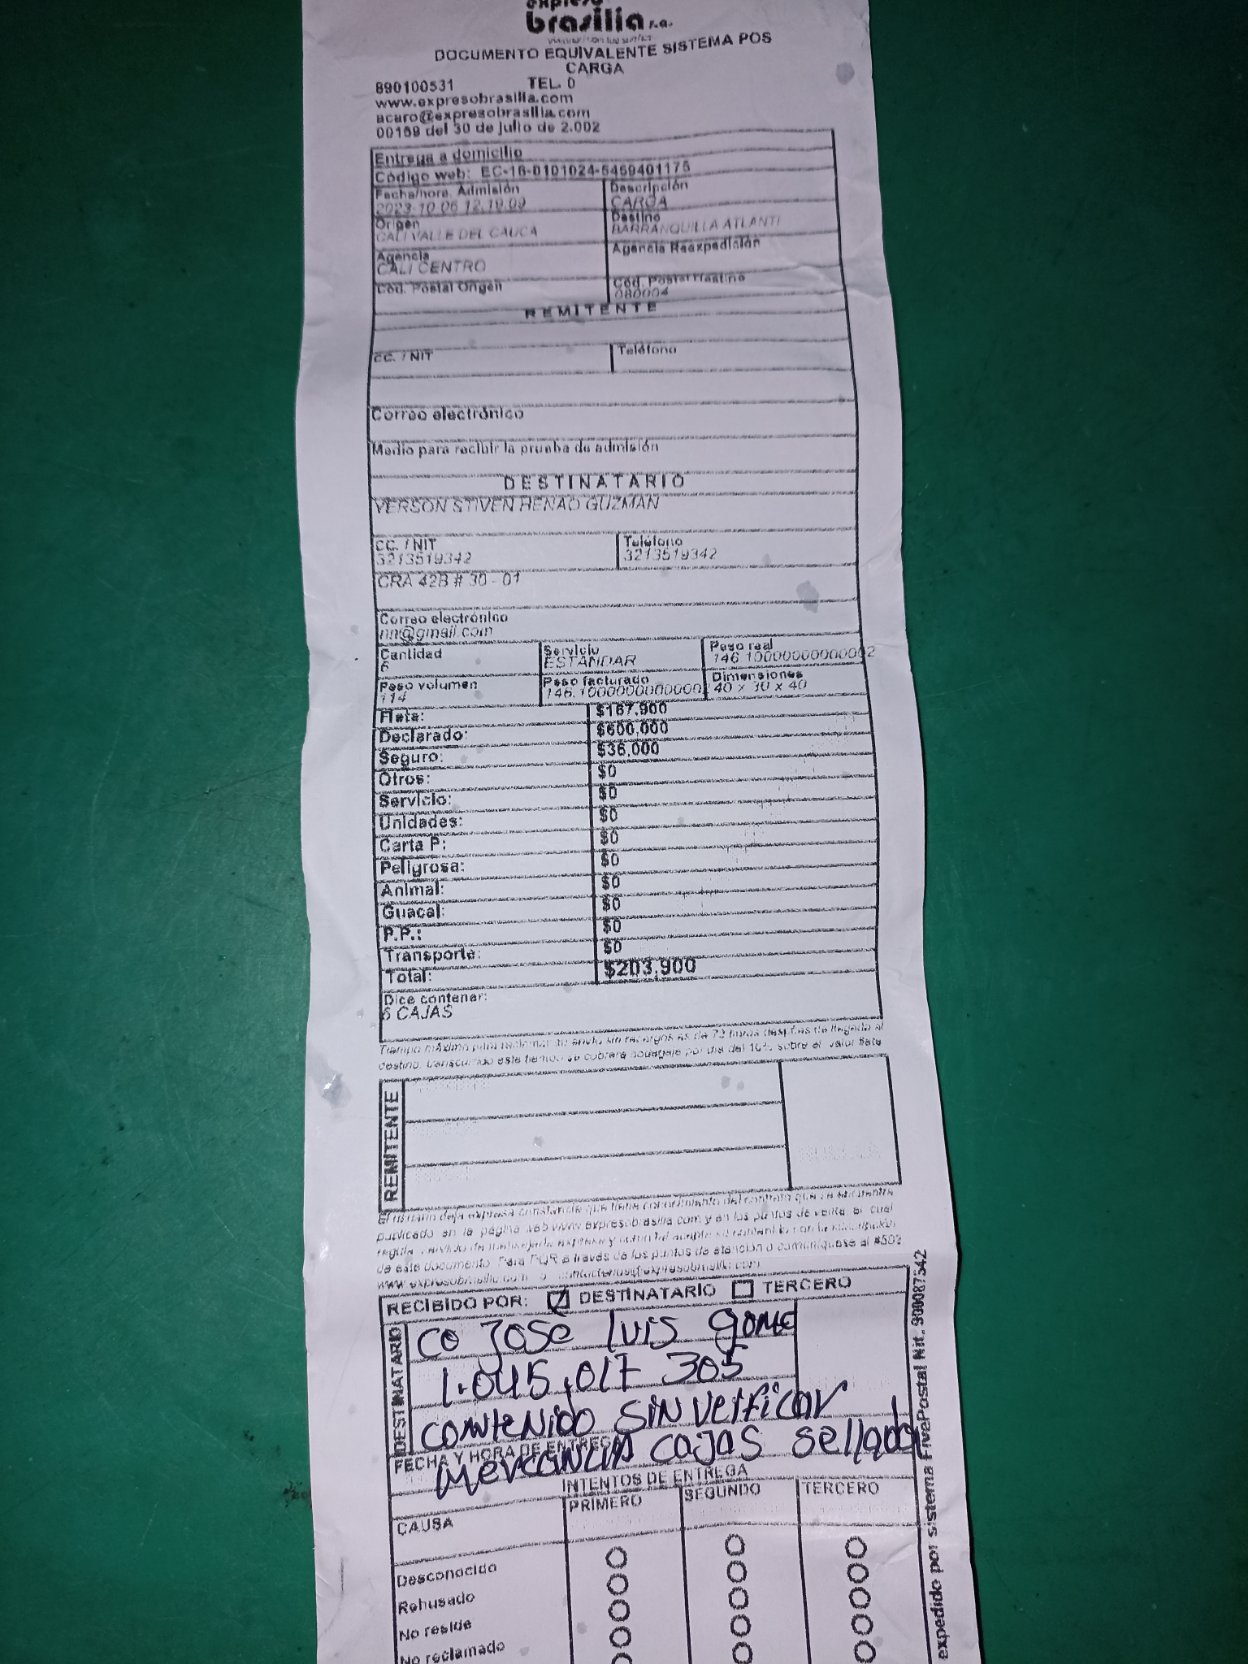 expreso
brasilia s.a.
DOCUMENTO EQUIVALENTE SISTEMA POS
CARGA
890100531 TEL. 0
www.expresobrasilia.com
acaro@expresobrasilia.com
00169 del 30 de julio de 2.002
Entrega a domicilio
Código web: EC-16-0101024-5459401175
Fecha/hora. Admisión Descripción
2023-10-06 12:19:09 CARGA
Origen Destino
CALI VALLE DEL CAUCA BARRANQUILLA ATLANTI
Agencia Agencia Reexpedición
CALI CENTRO
Cód. Postal Origen Cód. Postal Destino
080004
REMITENTE
CC. / NIT Teléfono
Correo electrónico
Medio para recibir la prueba de admisión
DESTINATARIO
YERSON STIVEN HENAO GUZMAN
CC. / NIT Teléfono
3213519342 3213519342
CRA 42B # 30 - 01
Correo electrónico
nn@gmail.com
Cantidad Servicio Peso real
6 ESTANDAR 146.10000000000002
Peso volumen Peso facturado Dimensiones
114 146.1000000000000 40 x 30 x 40
Flete: $167,900
Declarado: $600,000
Seguro: $36,000
Otros: $0
Servicio: $0
Unidades: $0
Carta P: $0
Peligrosa: $0
Animal: $0
Guacal: $0
P.P.: $0
Transporte: $0
Total: $203,900
Dice contener:
6 CAJAS
Tiempo máximo para reclamar su envío sin recargos es de 72 horas después de llegado al
destino. Transcurrido este tiempo se cobrará bodegaje por día del 10% sobre el valor flete
REMITENTE
El usuario deja expresa constancia que tiene conocimiento del contrato que se encuentra
publicado en la página web www.expresobrasilia.com y en los puntos de venta, el cual
de este documento. Para PQR a través de los puntos de atención o comuníquese al #502
RECIBIDO POR: DESTINATARIO TERCERO
DESTINATARIO
CO José luis gome
1.045,017 305
contenido sin verificar
FECHA Y HORA DE ENTREGA
mercancia cajas sellada
INTENTOS DE ENTREGA
CAUSA PRIMERO SEGUNDO TERCERO
Desconocido
Rehusado
No reside
No reclamado
expedido por sistema FivePostal Nit. 900087342